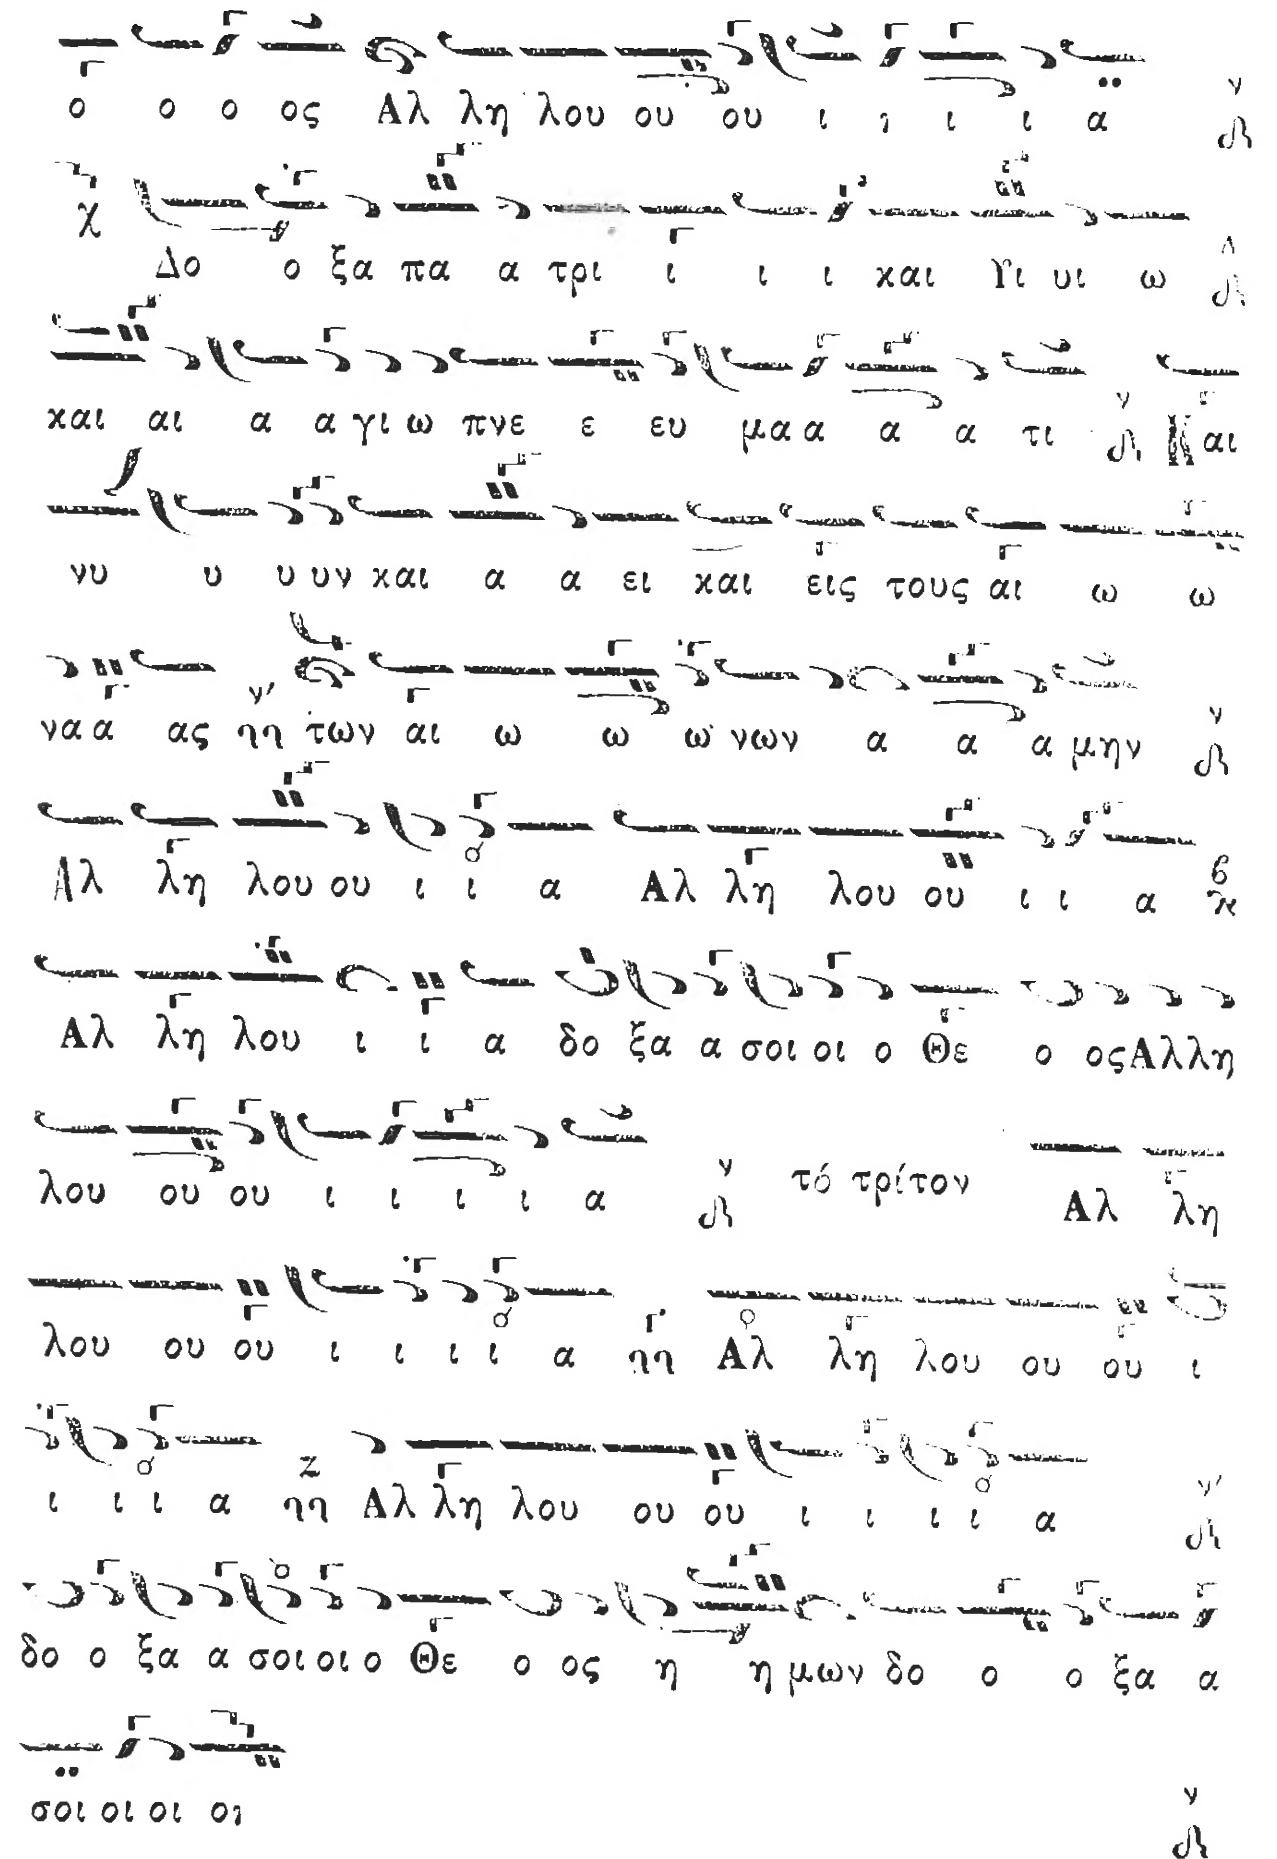 ο ο ο ος Αλ λη λου ου ου ι ι ι ι α
Δο ο ξα πα α τρι ι ι ι και Υι υι ω
και αι α α γι ω πνε ε ευ μα α α α τι Και
νυ υ υ υν και α α ει και εις τους αι ω ω
να α ας ηη των αι ω ω ω νων α α α μην
Αλ λη λου ου ι ι α Αλ λη λου ου ι ι α
Αλ λη λου ι ι α δο ξα α σοι οι ο Θε ο ος Αλ λη
λου ου ου ι ι ι ι α τό τρίτον Αλ λη
λου ου ου ι ι ι ι α ηη Αλ λη λου ου ου ι
ι ι ι α ηη Αλ λη λου ου ου ι ι ι ι α
δο ο ξα α σοι οι ο Θε ο ος η η μων δο ο ο ξα α
σοι οι οι οι